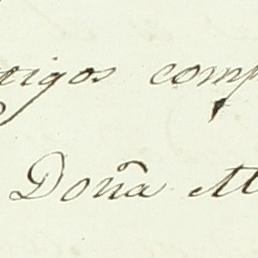 tigos comp
Doña M